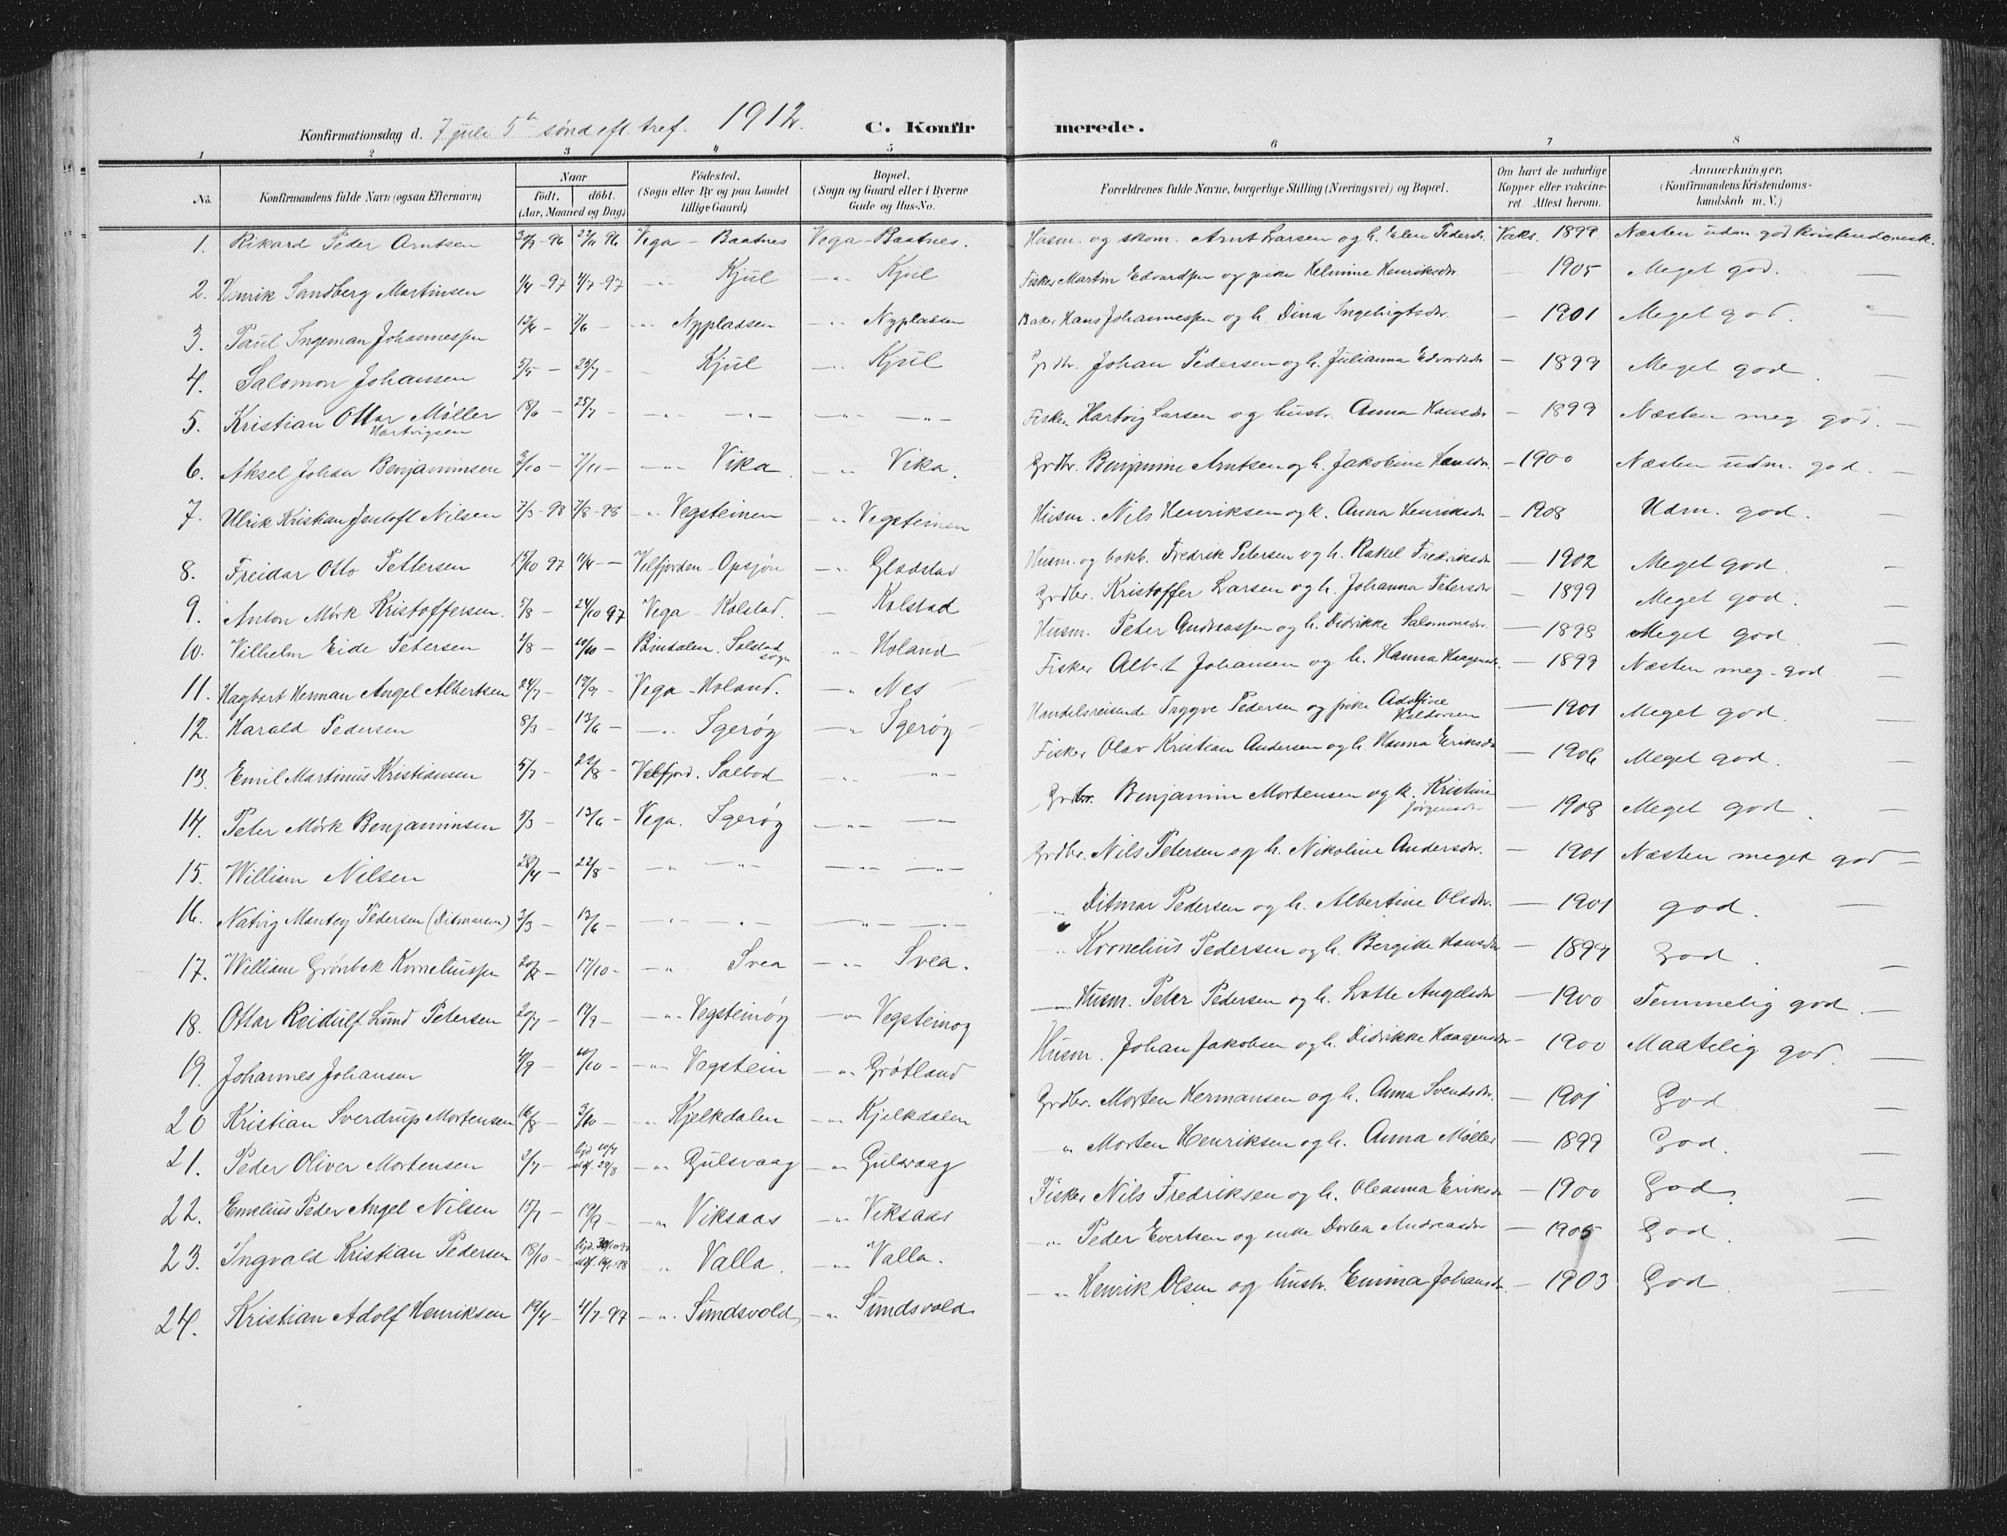 Konfirmationsdag d. 7 juli 5te sønd eft. tref. 1912. C. Konfirmerede.
1 2 3 4 5 6 7 8
No. Konfirmandens fulde Navn (ogsaa Efternavn) Naar født. døbt. (Aar, Maaned og Dag) Fødested. (Sogn eller By og paa Landet tillige Gaard) Bopæl. (Sogn og Gaard eller i Byerne Gade og Hus-No. Forældrenes fulde Navne, borgerlige Stilling (Næringsvei) og Bopæl. Om havt de naturlige Kopper eller vakcineret. Attest herom. Anmærkninger, (Konfirmandens Kristendomskundskab m. V.)
1. Rikard Peder Arntsen Vega - Baatnes Vega - Baatnes. Husm. og skom. Arnt Larsen og h. Elen Pedersdr. Vaks. 1899 Næsten udm. god kristendomsk.
2. Henrik Sandberg Martinsen 1/4 - 97 4/7 - 97 -"- Kjul -"- Kjul Fisker Martin Edvardsen og pike Helmine Henriksdr. - 1905 Meget god. —
3. Paul Ingeman Johannessen 12/4 - 7/6 - -"- Nyplassen -"- Nyplassen Baker Hans Johannessen og h. Dina Ingebrigtsdr. - 1901 Meget god. —
4. Salomon Johansen 5/5 - 25/7 - - Kjul -"- Kjul Grdbr. Johan Pedersen og h. Julianna Edvardsdr. - 1899 Meget god. —
5. Kristian Ottar Møller Hartvigsen 18/6 - 25/7 - -"- -"- -"- -"- Fisker Hartvig Larsen og hustr. Anna Hansdr. - 1899 Næsten meg. god. —
6. Aksel Johan Benjaminsen 3/10 - 7/11 - -"- Vika -"- Vika. Grdbr. Benjamin Arntsen og h. Jakobine Hansdr. - 1900 Næsten udm. god. —
7. Ulrik Kristian Jentoft Nilsen -"- Vegsteinen -"- Vegsteinen Husm. Nils Henriksen og h. Anna Henriksdr. - 1908 Udm. god. —
8. Freidar Otto Pettersen 15/10 97 Velfjorden - Opsjøn -"- Gladstad Husm. og bokb. Fredrik Petersen og h. Rakel Fredriksdr. - 1902 Meget god. —
9. Anton Mørk Kristoffersen. 5/8 - 24/10 97 Vega - Kolstad - Kolstad Grdbr. Kristoffer Larsen og h. Johanna Petersdr. - 1899 Meget god. —
10. Vilhelm Eide Petersen 2/8 - 10/10 - Bindalen. Solstad sogn -"- Holand Husm. Peter Andreassen og h. Didrikke Salomonsdr. - 1898 Meget god. —
11. Hagbart Herman Angel Albertsen 24/7 - 19/9 - Vega - Holand. -"- Nes - Fisker Albert Johansen og h. Hanna Haagensdr. - 1899 Næsten meg. god. —
12. Harald Pedersen 8/3 - 13/6 - -"- Igerøy -"- Igerøy - Handelsreisende Trygve Pedersen og pike Adolfine Haldorsen - 1901 Meget god. —
13. Emil Martinus Kristiansen 5/7 - 22/8 - Velfjord. Salbod -"- -"- Fisker Olav Kristian Andersen og h. Hanna Eriksdr. - 1906 Meget god. —
14. Peter Mørk Benjaminsen 5/3 - 13/6 - Vega. Igerøy -"- - Grdbr. Benjamin Mortensen og h. Kristine Jørgensdr. - 1908 Meget god. —
15. William Nilsen 28/4 - 22/8 - -"- -"- -"- -"- Grdbr. Nils Petersen og h. Nikoline Andersdr. - 1901 Næsten meget god —
16. Nativg Mantey Pedersen (Ditmarsen) 2/3 - 13/6 - -"- -"- -"- -"- " Ditmar Pedersen og h. Albertine Olsdr. - 1901 god. —
17. William Grønbek Korneliussen 17/10 - -"- Svea -"- Svea. " Kornelius Pedersen og h. Bergitte Hansdr. - 1899 God. —
18. Ottar Reidulf Lund Petersen 20/7 - 19/9 - -"- Vegsteinøy -"- Vegsteinøy - Husm. Peter Pedersen og h. Lotte Angelsdr. - 1900 Temmelig god. —
19. Johannes Johansen 4/9 - 10/10 - -"- Vegstein -"- Grøtland Husm. Johan Jakobsen og h. Didrikke Haagensdr. - 1900 Maatelig god. —
20 Kristian Sverdrup Mortensen 16/8 - 3/10 - -"- Kjelkdalen -"- Kjelkdalen Grdbr. Morten Hermansen og h. Anna Svendsdr. - 1901 God —
21. Peder Oliver Mortensen 2/7 - hjd 10/7 stf. 29/8 -"- Gulsvaag -"- Gulsvaag " Morten Henriksen og h. Anna Møller - 1899 God. —
22. Emelius Peder Angel Nilsen 15/7 - 19/9 - -"- Viksaas -"- Viksaas Fisker Nils Fredriksen og h. Oleanna Eriksdr. - 1900 God. —
23. Ingvald Kristian Pedersen 18/10 - -"- Valla. -"- Valla. " Peder Evertsen og enke Dortea Andreasdr. - 1905 God. —
24. Kristian Adolf Henriksen 19/4 - 4/7 - 97 -"- Sundsvold -"- Sundsvold. -"- Henrik Olsen og hustr. Emma Johansdr. - 1903 God —